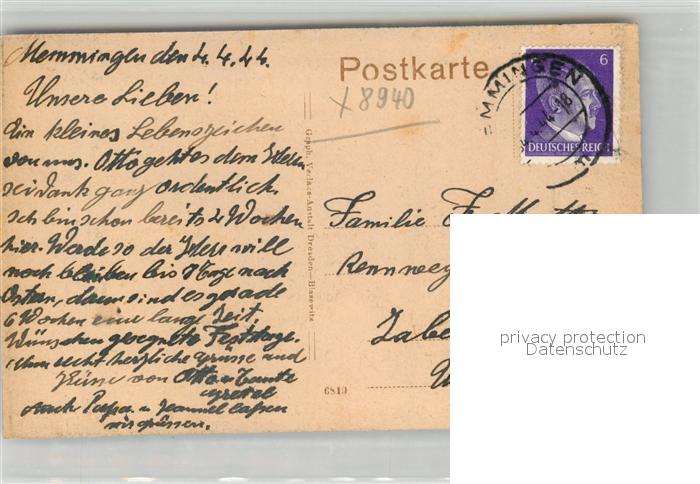 Memmingen den 4.4.44.
Unsere Lieben!
Ein kleines Lebenszeichen
von uns. Otto geht es dem Herrn
sei dank ganz ordentlich.
Ich bin schon bereits 2 Wochen
hier. Werde so der Herr will
noch bleiben bis 8 Tage nach
Ostern, dann sind es gerade
6 Wochen eine lange Zeit.
Wünschen gesegnete Festtage.
recht herzliche Grüsse und
Küsse von Otto u Tante
Gretel
Auch Papa u. lassen
grüssen.
Postkarte
X 8940
MEMMINGEN
6
DEUTSCHES REICH
Graph. Verlags-Anstalt Dresden-Blasewitz
6810
Familie
Rennweg
Zabe
privacy protection
Datenschutz